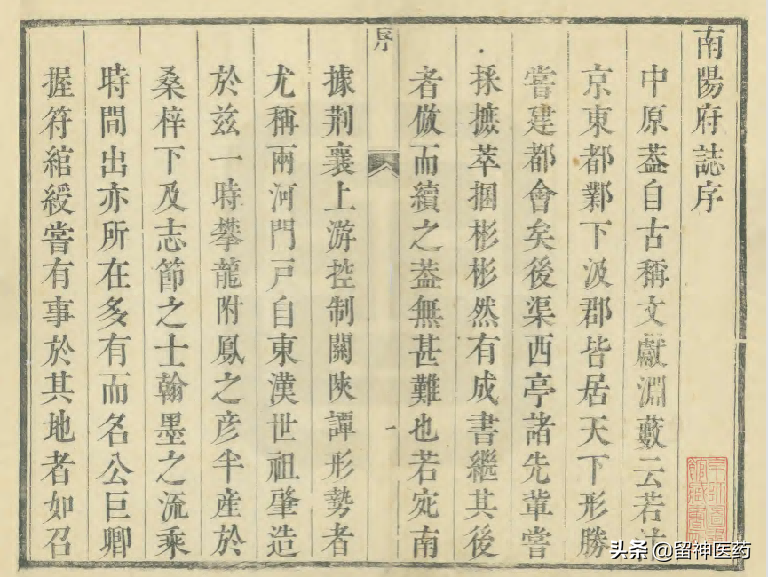 南陽府誌序
中原葢自古稱文獻淵藪云若汴
京東都鄴下汲郡皆居天下形勝
嘗建都會矣後渠西亭諸先軰嘗
採摭萃捆彬彬然有成書繼其後
者倣而續之葢無甚難也若宛南
序
一
據荆襄上游控制關陜譚形勢者
尤稱兩河門戸自東漢世祖肇造
於兹一時攀龍附鳳之彦半產於
桑梓下及志節之士翰墨之流乘
時間出亦所在多有而名公巨卿
握符綰綬嘗有事於其地者如召
头条 @留神医药